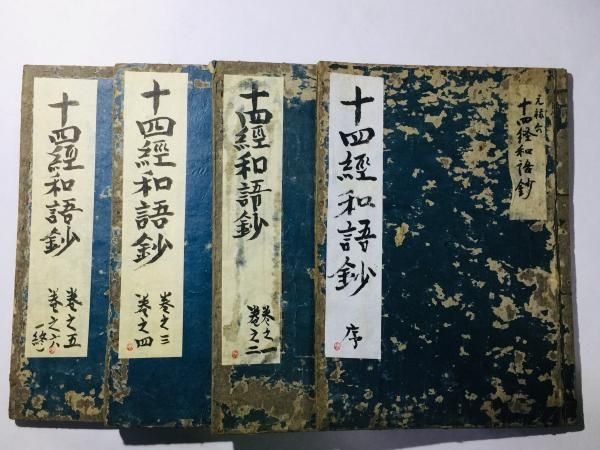 元禄六
十四経和語鈔
十四經和語鈔
序
十四經和語鈔
巻之一
巻之二
十四經和語鈔
巻之三
巻之四
十四經和語鈔
巻之五
巻之六
終